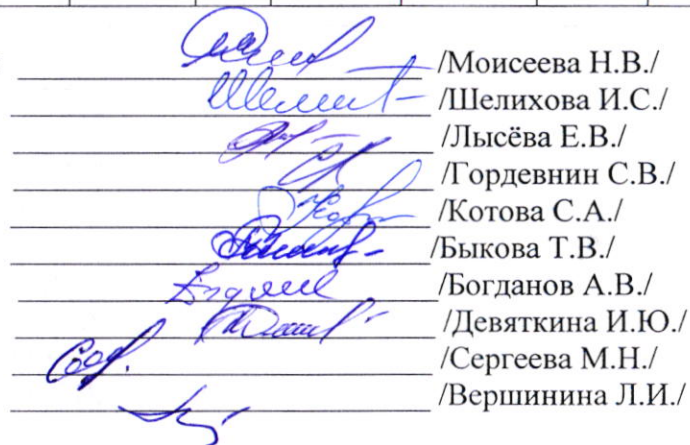 /Моисеева Н.В./
/Шелихова И.С./
/Лысёва Е.В./
/Гордевнин С.В./
/Котова С.А./
/Быкова Т.В./
/Богданов А.В./
/Девяткина И.Ю./
/Сергеева М.Н./
/Вершинина Л.И./